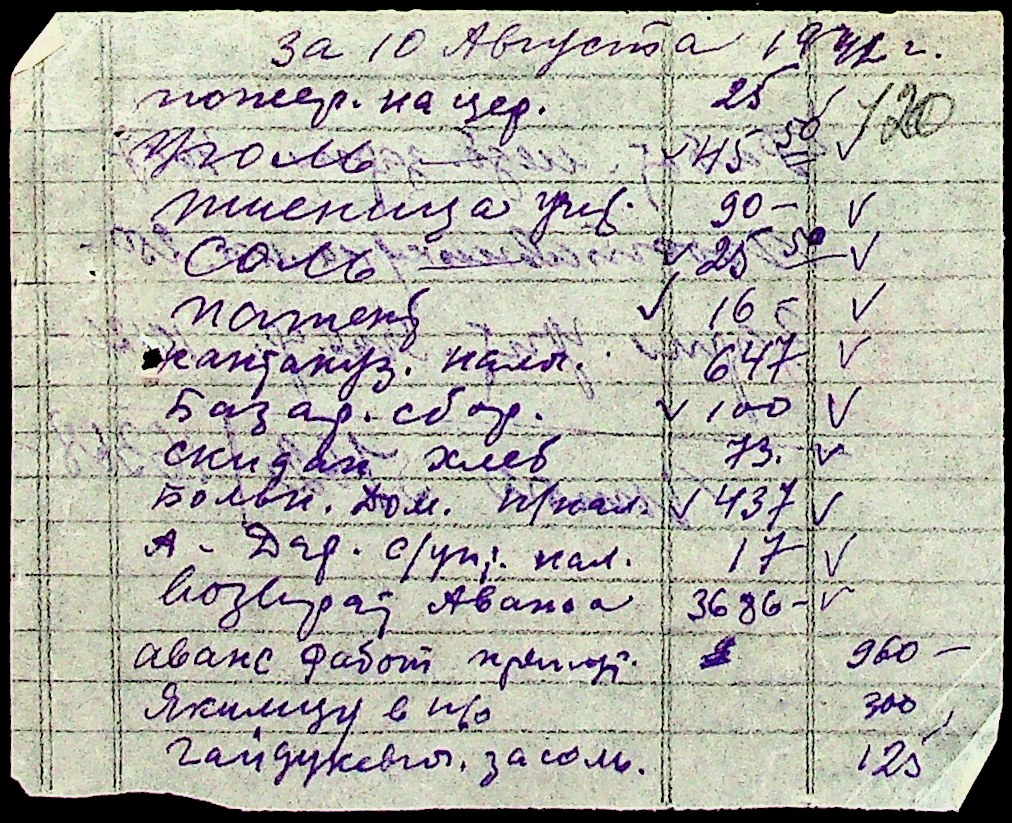 за 10 Августа 1942 г.
пожер. на цер. 25 120
Уголь — 45 50
пшеница 90 –
Соль — 25 50
патент 16 –
налог. 647
Базар. сбор. 100
скидан хлеб 73.
Больн. Дом. п/нал. 437
А - Дар. нал. 17
Возврат Аванса 3686 –
аванс работ 960 –
Якимцу в п/о 300
Гайдукевич. за соль. 125